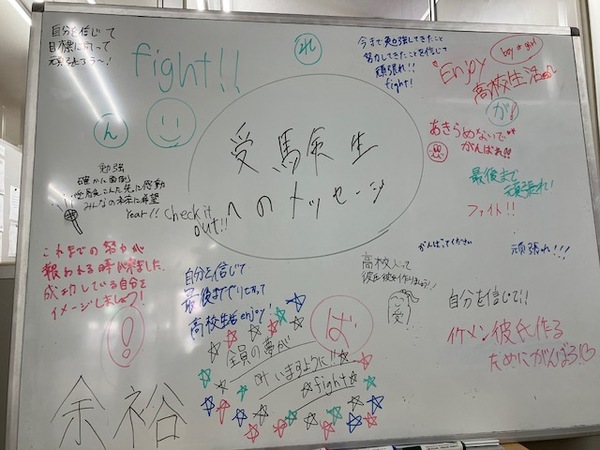 自分を信じて
目標に向って
頑張ろう〜!
fight!!
れ
今まで勉強してきたこと
努力してきたことを信じて
頑張れ!!
fight!
Enjoy
boy☆girl
高校生活
が!
ん
あきらめないで
がんばれ!!
最後まで
頑張れ!
ファイト!!
受験生
へのメッセージ
勉強
確かに面倒
みんなの未来に希望
Year!! Check it
out!!
これまでの努力が
報われる時が来ました。
成功している自分を
イメージしましょう!
!
自分を信じて
最後までやりきって
高校生活enjoy!
がんばってください
頑張れ!!!
高校入って
彼氏彼女作りましょう!
愛
ば
全員の夢が
叶いますように!!
fight
自分を信じて!!
イケメン彼氏作る
ためにがんばろ!
余裕